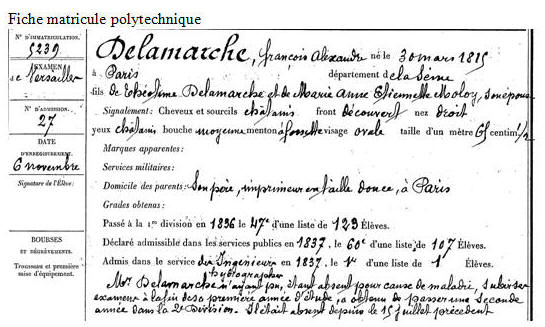 Fiche matricule polytechnique
N° D'IMMATRICULATION.
5239
EXAMEN
de Versailles
N° D'ADMISSION.
27
DATE
D'ENREGISTREMENT.
6 novembre
Signature de l'Élève:
BOURSES
ET
DÉGRÈVEMENTS.
Trousseau et première
mise d'équipement.
Delamarche, françois Alexandre né le 30 mars 1815
à Paris département de la Seine
fils de Théotime Delamarche et de Marie Anne Etiennette Moloy, son épouse
Signalement: Cheveux et sourcils châtains front découvert nez droit
yeux châtains bouche moyenne menton à fossette visage ovale taille d'un mètre 65 centim 1/2
Marques apparentes:
Services militaires:
Domicile des parents: Son père, imprimeur en taille douce, à Paris
Grades obtenus:
Passé à la 1re division en 1836 le 47e d'une liste de 123 Élèves.
Déclaré admissible dans les services publics en 1837. le 60e d'une liste de 107 Élèves.
Admis dans le service des Ingénieur en 1837. le 1er d'une liste de 1 Élève.
hydrographe
Mr. Delamarche n'ayant pu, étant absent pour cause de maladie, subir son
examen à la fin de sa première année d'étude, a obtenu de passer une seconde
année dans la 2e Division. Il était absent depuis le 15 juillet précédent